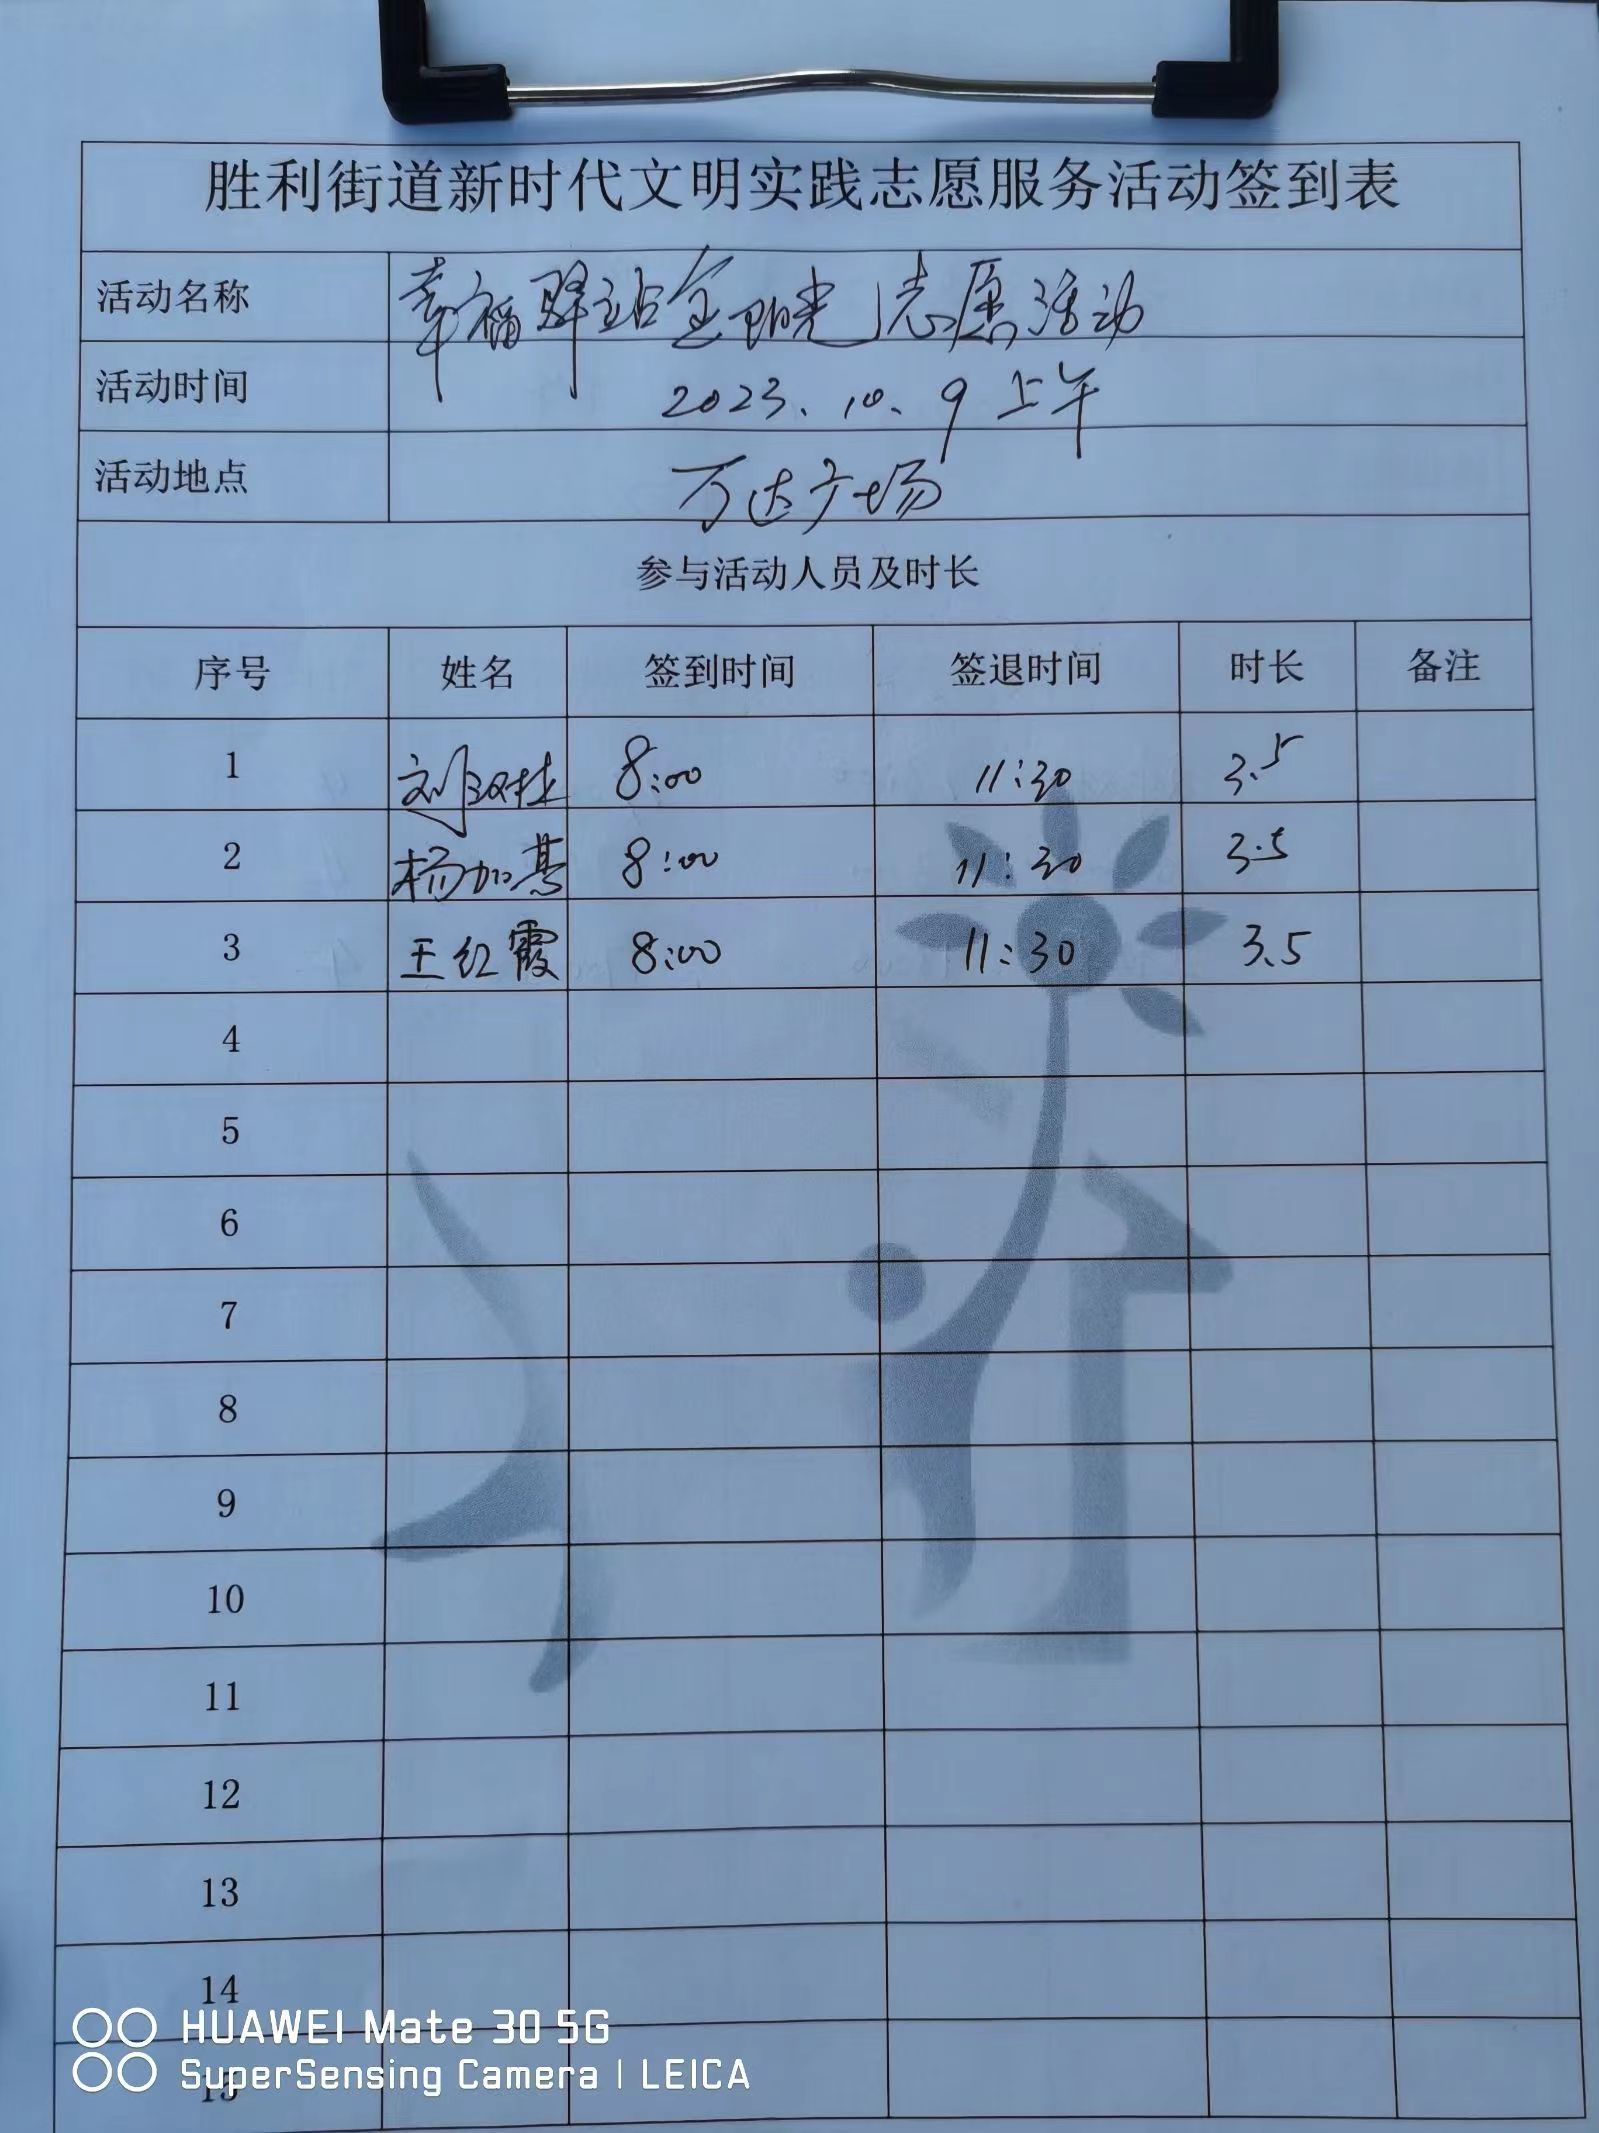 胜利街道新时代文明实践志愿服务活动签到表
活动名称 幸福驿站金阳光志愿活动
活动时间 2023.10.9 上午
活动地点 万达广场
参与活动人员及时长
序号 姓名 签到时间 签退时间 时长 备注
1 刘汉桂 8:00 11:30 3.5
2 杨加慧 8:00 11:30 3.5
3 王红霞 8:00 11:30 3.5
4
5
6
7
8
9
10
11
12
13
14
15
HUAWEI Mate 30 5G
SuperSensing Camera | LEICA